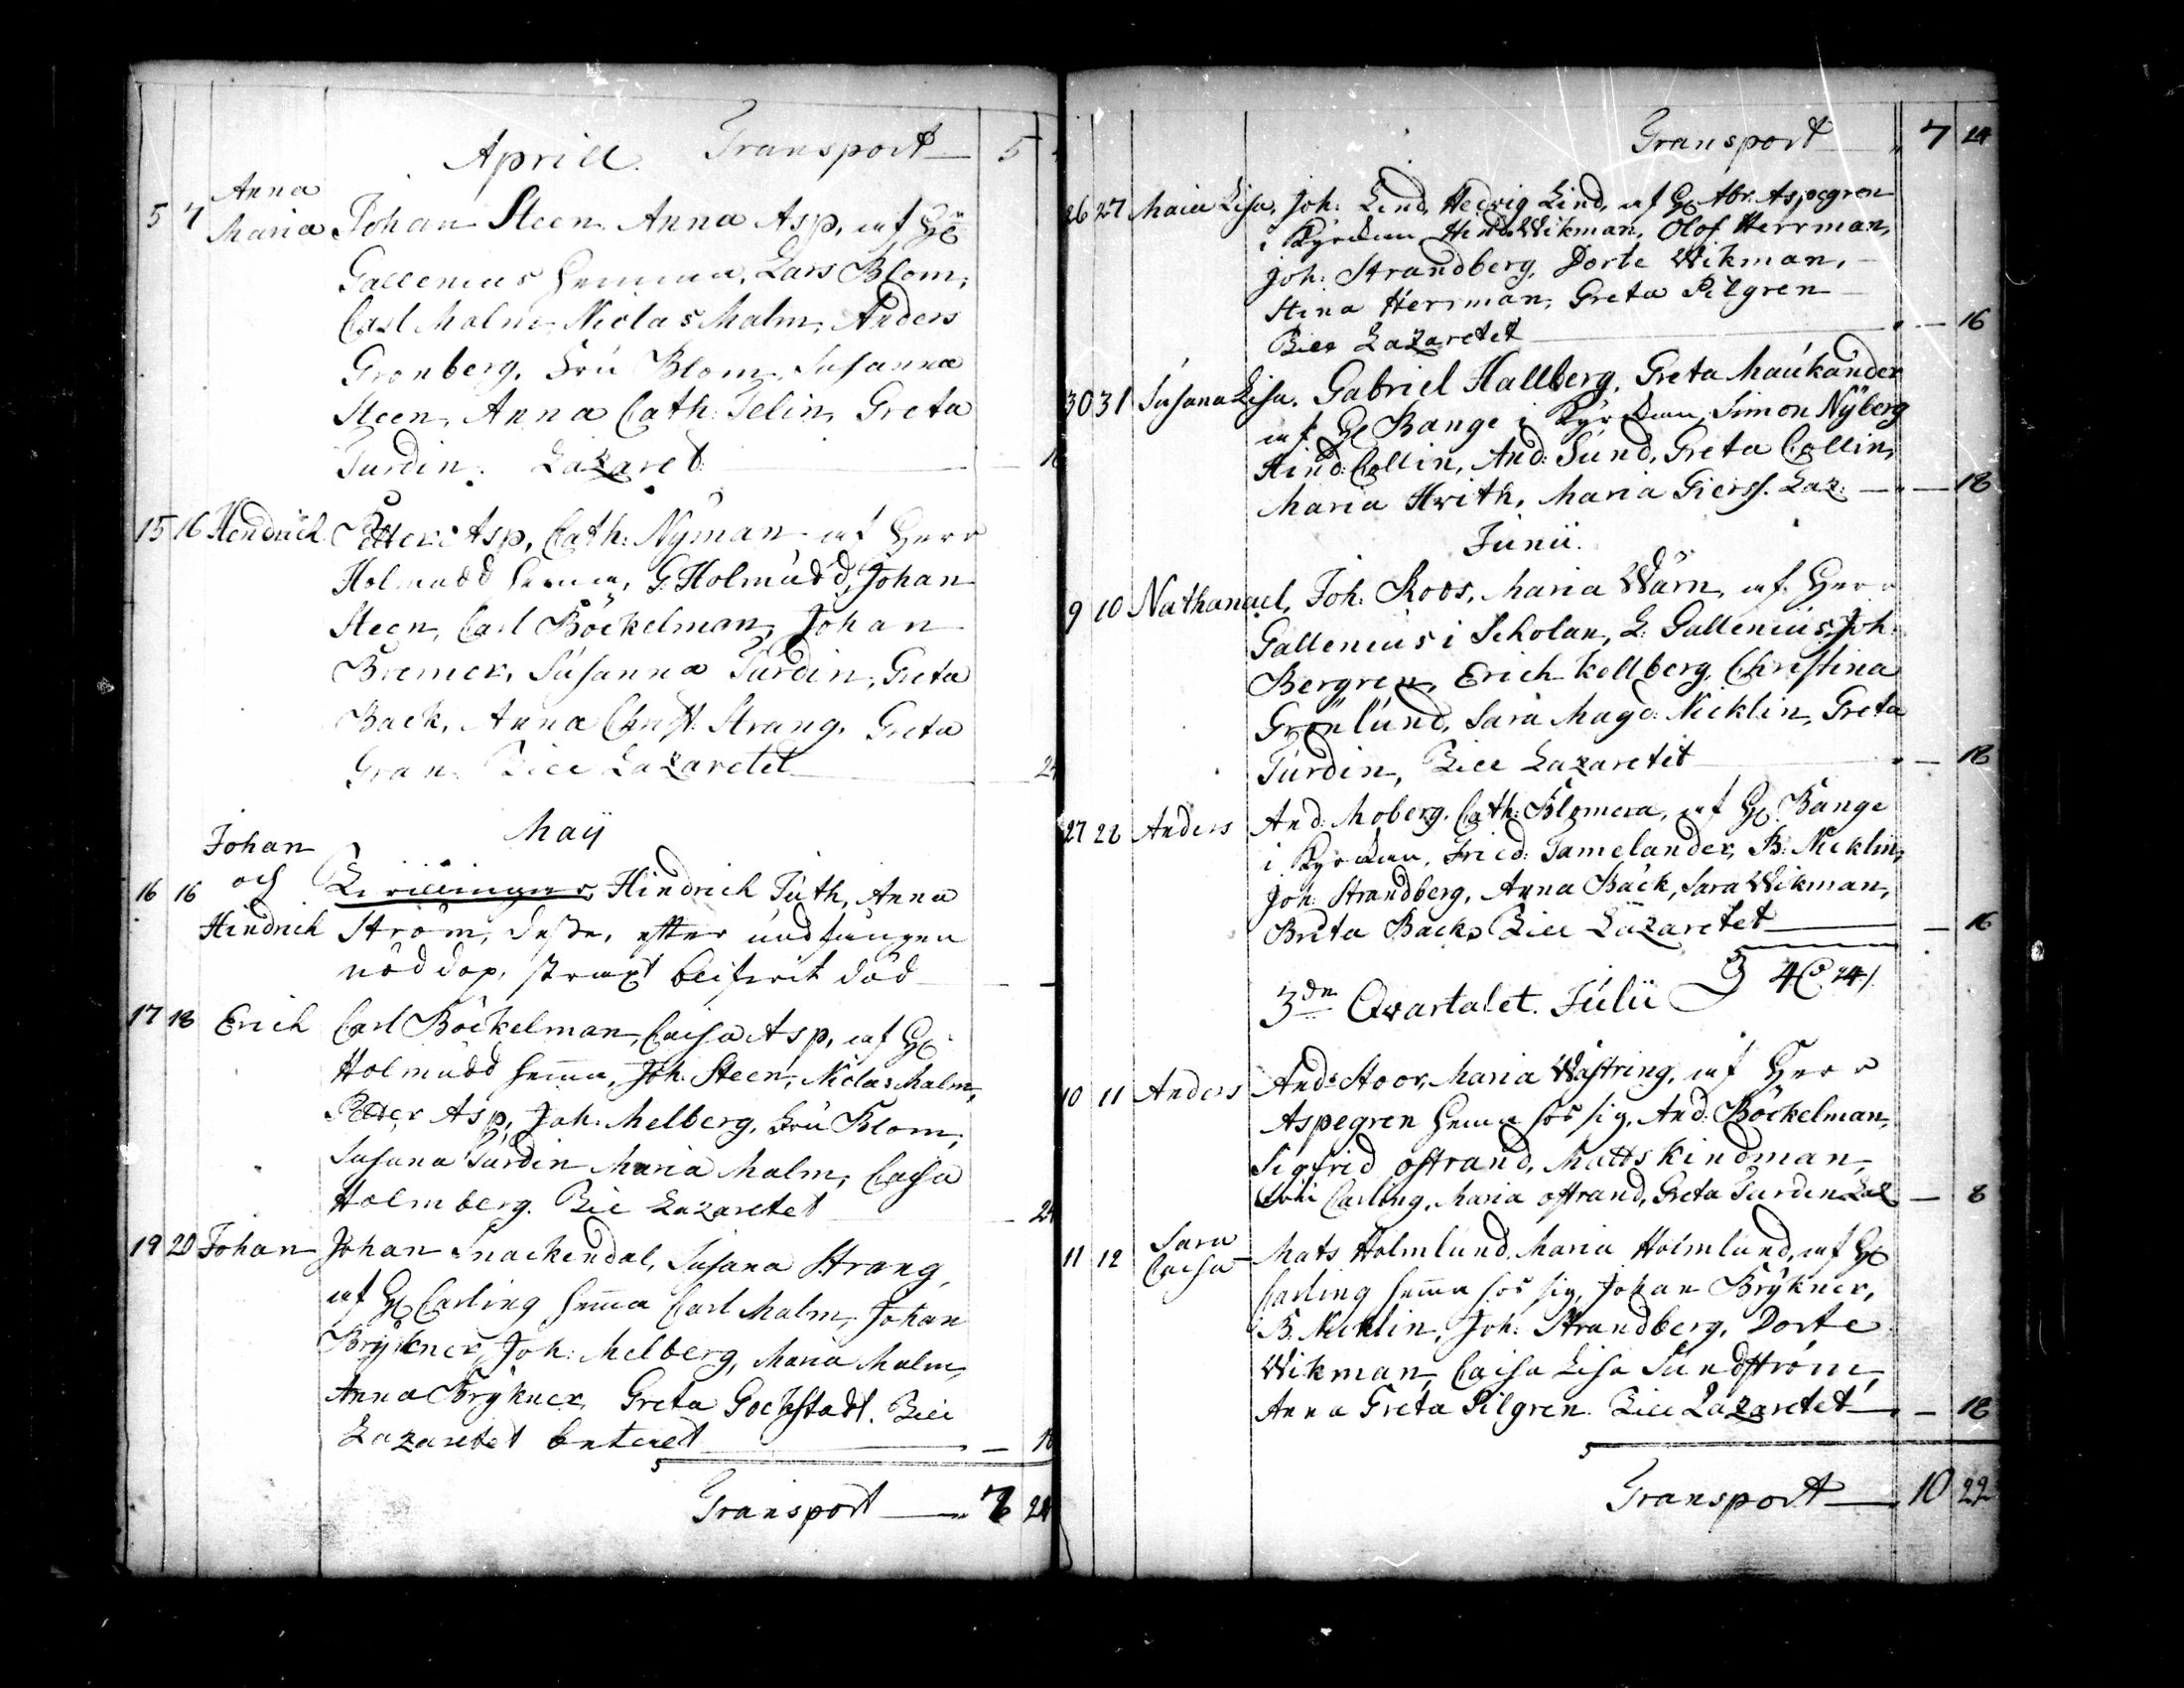 Aprill. Transport — 5
Anna
5 7 Maria Johan Steen, Anna Asp, af H:
Gallenius hemma, Lars Blom,
Carl Malm, Niclas Malm, Anders
Gronberg, Fru Blom, Susanna
Steen, Anna Cath: Telin, Greta
Turdin. Lazaret
15 16 Hendrich Petter Asp, Cath: Nyman af Herr
Holmudd hemma, G: Holmudd, Johan
Steen, Carl Böckelman, Johan
Bremer, Susanna Turdin, Greta
Back, Anna Christ: Strang, Greta
Gran. Till Lazaretet
Maij
Johan
och
16 16 Hindrich Tvillingar, Hindrich Juth, Anna
Ström, desse, efter undfången
nöddop, straxt blifvit död
17 18 Erich Carl Böckelman, Caisa Asp, af H:
Holmudd hema, Joh: Steen, Niclas Malm,
Petter Asp, Joh: Melberg, Fru Blom,
Susana Turdin Maria Malm, Caisa
Holmberg. Till Lazaretet
19 20 Johan Johan Snackendal, Susana Strang,
af H: Carling hema Carl Malm, Johan
Brykner, Joh: Melberg, Maria Malm,
Anna Brykner, Greta Gockstadt. Till
Lazaretet betalt
Transport — 7 24
Transport — 7 24
26 27 Maia Lisa, Joh: Lind, Hedvig Lind, af H: Abr. Aspegren
i Kyrckan Hind: Wikman, Olof Herrman,
Joh: Strandberg, Dorte Wikman,
Stina Herrman, Greta Pilgren
Till Lazaretet — 16
30 31 Susana Lisa. Gabriel Hallberg, Greta Maukander
af H: Bange i Kyrckan, Simon Nyberg
Hind: Collin, And: Sund, Greta Collin,
Maria Hvith, Maria Gierss. Laz: — 18
Junii.
9 10 Nathanael, Joh: Roos, Maria Wärn, af Herr
Gallenius i Scholan, L: Gallenius, Joh:
Bergren, Erich Kellberg, Christina
Grönlund, Sara Magd: Nicklin, Greta
Turdin, Till Lazaretet — 18
27 28 Anders And: Moberg, Cath: Blomera, af H: Bange
i Kyrckan, Fried: Tamelander, B: Nicklin,
Joh: Strandberg, Anna Back, Sara Wikman,
Brita Back, Till Lazaretet — 16
3dn Qvartalet. Julii
10 11 Anders And: Stoor, Maria Wästring, af Herr
Aspegren hema hos sig, And: Böckelman,
Sigfrid Östrand, Matts Kindman,
Fru Carling, Maria Östrand, Greta Turdin Laz — 8
Sara
11 12 Caisa Mats Holmlund, Maria Holmlund, af H:
Carling hema hos sig, Johan Brykner,
B: Nicklin, Joh: Strandberg, Dorte
Wikman, Caisa Lisa Sundström,
Anna Greta Pilgren. Till Lazaretet — 18
Transport — 10 22